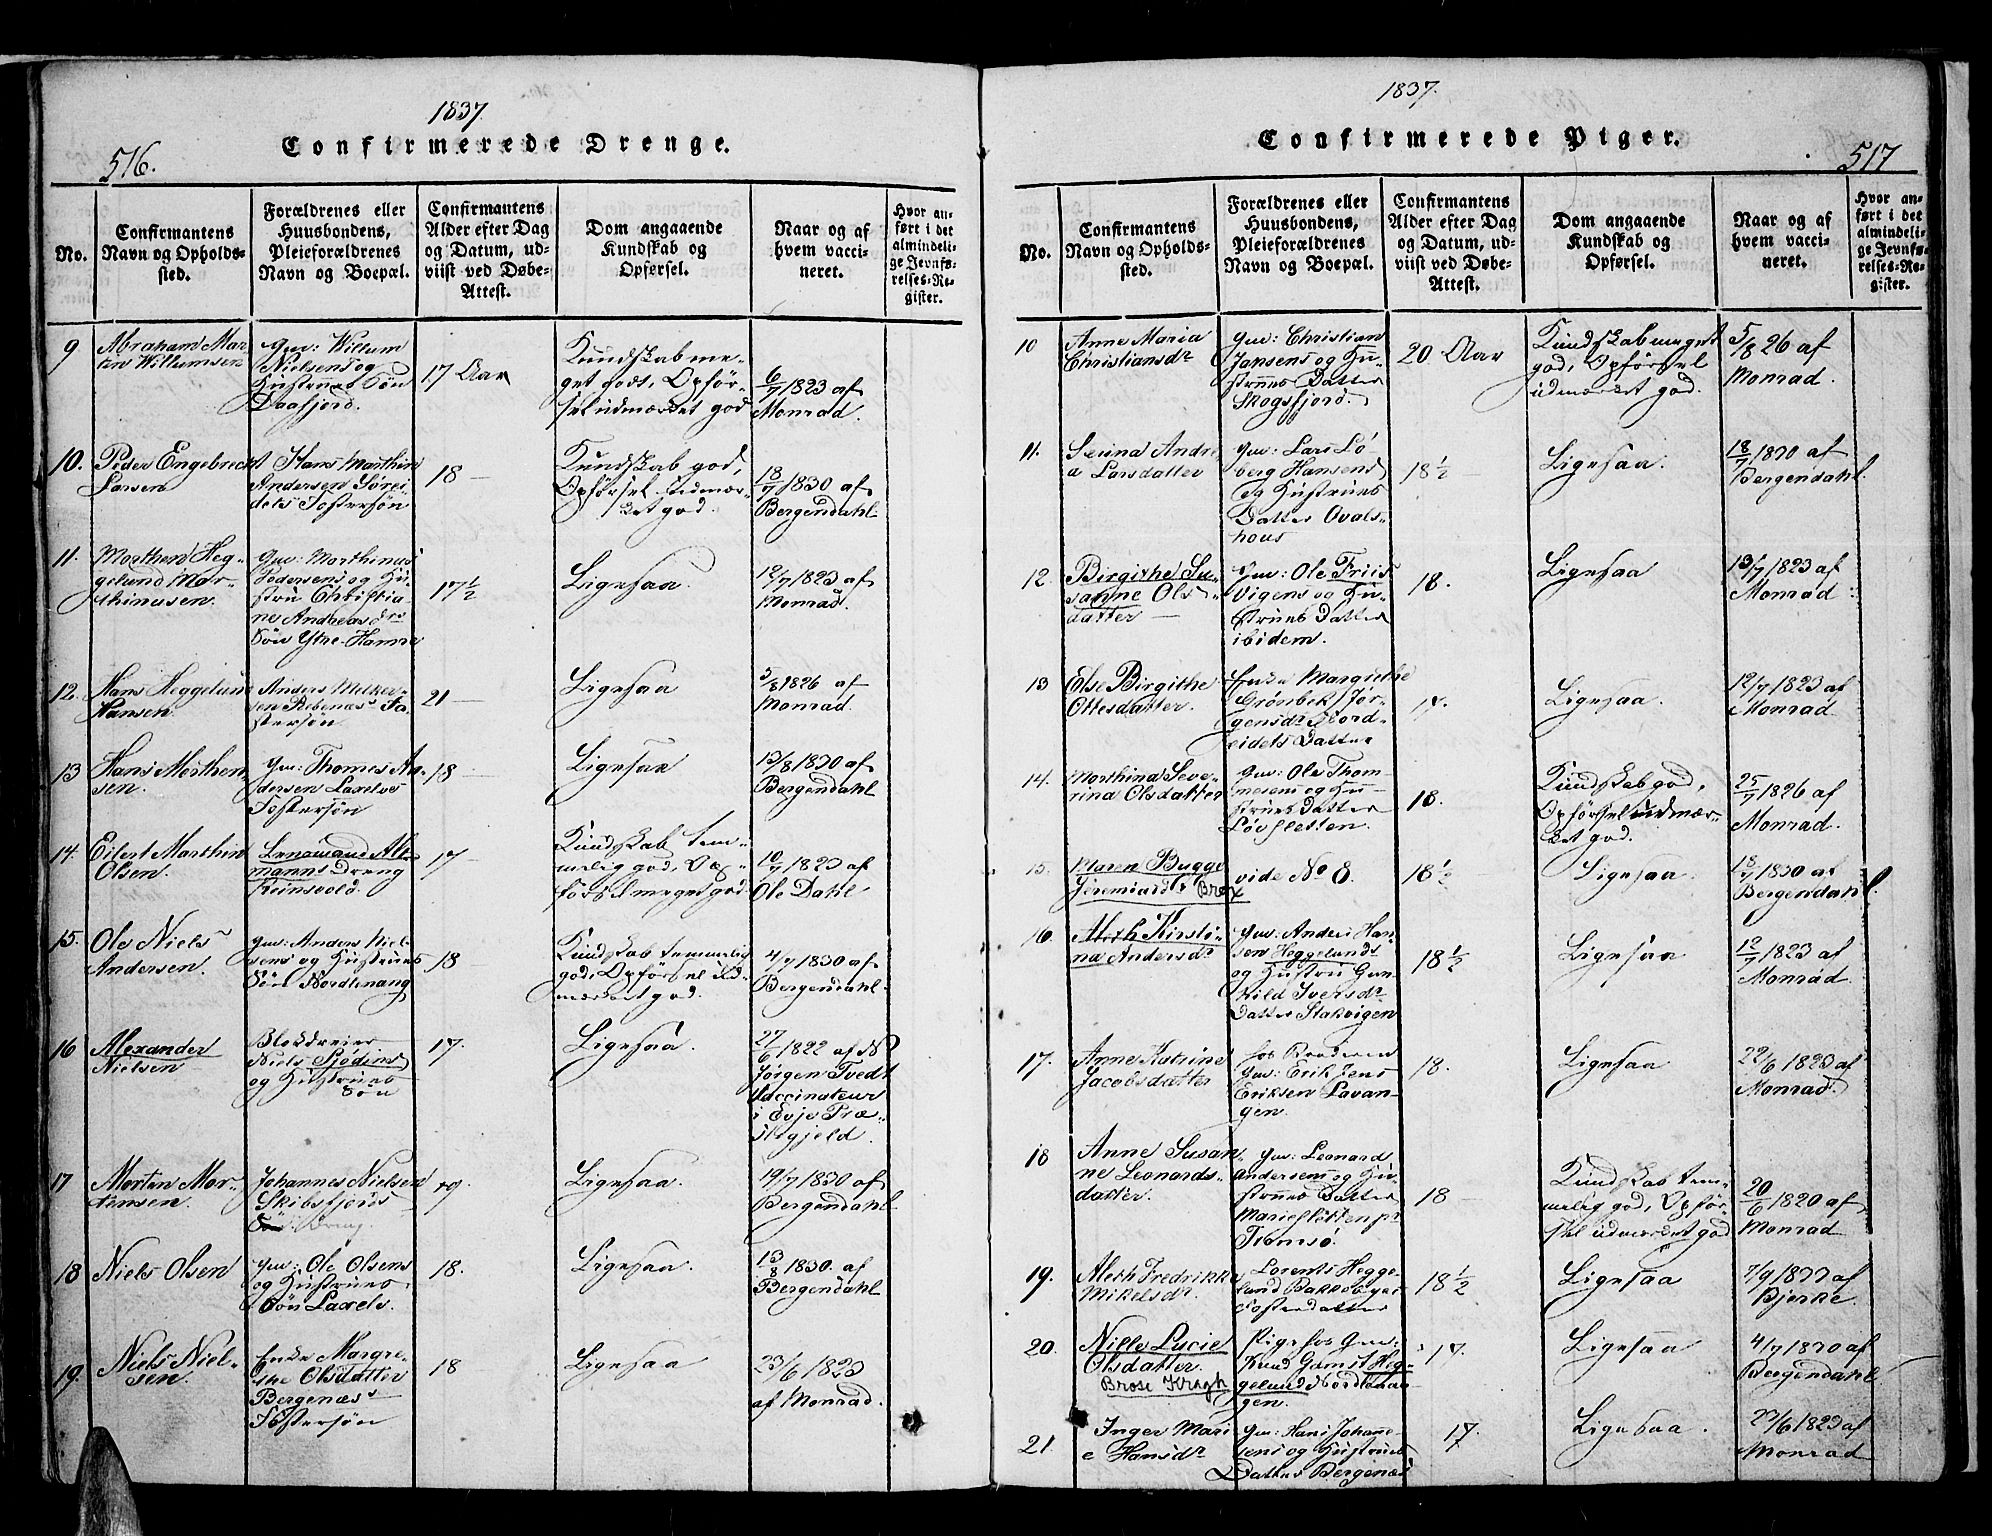 1837.
Confirmerede Drenge.
516.
No.
Confirmantens
Navn og Opholds-
sted.
Forældrenes eller
Huusbondens,
Pleieforældrenes
Navn og Boepæl.
Confirmantens
Alder efter Dag
og Datum, ud-
viist ved Døbe-
Attest.
Dom angaaende
Kundskab og
Opførsel.
Naar og af
hvem vacci-
neret.
Hvor an-
ført i det
almindeli-
ge Jevnfø-
relses-Re-
gister.
9
Abraham Mar-
tin Willumsen
Gm: Willum
Nielsens og
Hustrues Søn
Daafjord.
17 Aar
Kundskab me-
get godt, Opfør-
sel udmærket god
6/7 1823 af
Monrad.
10.
Peder Engebrecht
Larsen
Hans Marthin
Andersen
Fostersøn
18 —
Kundskab god,
Opførsel udmær-
ket god.
18/7 1830 af
Bergendahl
11.
Morthen Heg-
gelund Mar-
thinusen.
Gm: Marthinus
Pedersens og Hu-
stru Christia-
ne Andreasdr
Søn Ytre-Hamne
17 1/2
Ligesaa.
12/7 1823 af
Monrad.
12.
Hans Heggelun
Hansen.
Anders Melker-
sen Rebenæs Fo-
stersøn
21 —
Ligesaa
5/8 1826 af
Monrad.
13
Hans Morthen-
sen.
Gm: Thomes An-
dersen Laxelvs
Fostersøn
18 —
Ligesaa
13/8 1830 af
Bergendahl
14.
Eilert Marthin
Olsen.
Lensmand
Dreng
Reinsvold
17 —
Kundskab tem-
melig god, Op-
førsel meget god
10/7 1823 af
Ole Dahl
15.
Ole Niels
Andersen.
Gm: Anders Niel-
sens og Hustrues
Søn
18 —
Kundskab temmelig
god, Opførsel ud-
mærket god.
4/7 1830 af
Bergendahl.
16
Alexander
Nielsen
Blokdreier
Niels Sjødins
og Hustrues
Søn
17.
Ligesaa.
27/6 1822 af N
Jørgen Tvedt
Vaccinateur
i Evje Præ-
stegjeld.
17
Morten Mor-
tensen.
Johannes Nielsen
Skibsfjords
Dreng.
19.
Ligesaa.
19/7 1830 af
Bergendahl
18
Niels Olsen
Gm: Ole Olsens
og Hustrues
Søn Laxelv.
18.
Ligesaa.
13/8 1830. af
Bergendahl
19.
Niels Niel-
sen.
Enke Margre-
the Olsdatter
Bergenæs
Fostersøn
18
Ligesaa
23/6 1823
af Monrad.
1837.
Confirmerede Piger.
517
No.
Confirmantens
Navn og Opholds-
sted.
Forældrenes eller
Huusbondens,
Pleieforældrenes
Navn og Boepæl.
Confirmantens
Alder efter Dag
og Datum, ud-
viist ved Døbe-
Attest.
Dom angaaende
Kundskab og
Opførsel.
Naar og af
hvem vacci-
neret.
Hvor an-
ført i det
almindeli-
ge Jevnfø-
relses-Re-
gister.
10
Anne Maria
Christiansdr
Gm: Christian
Jansens og Hu-
strues Datter
Skogsfjord.
20 Aar
Kundskab meget
god, Opførsel
udmærket god.
5/8 26 af
Monrad.
11.
Andre
a Larsdatter
Gm: Lars Lø
berg Hansens
og Hustrues
Datter Ovals-
hous
18 1/2
Ligesaa.
18/7 1830 af
Bergendahl.
12.
Birgithe Su-
sanne Ols-
datter —
Gm: Ole Friis
Vigens og Hu-
strues Datter
ibidem.
18.
Ligesaa
13/7 1823 af
Monrad
13
Else Birgithe
Ottesdatter.
Enke Margrethe
Grønbek Jør-
gensdr
Datter
17.
Ligesaa.
12/7 1823 af
Monrad
14.
Marthina Seve-
rina Olsdatter
Gm: Ole Thom-
mesens og Hu-
strues Datter
Løvsletten.
18.
Kundskab god,
Opførsel udmær-
ket god.
25/7 1826 af
Monrad.
15.
Maren Bugge
Jeremiasdr Brox
vide No 8.
18 1/2
Ligesaa.
18/7 1830 af
Bergendahl.
16.
Aleth Kirsti-
na Andersdr
Gm: Anders Han-
sens Heggelund
og Hustru Gun-
hild Iversdr
Datter Stakvigen
18 1/2
Ligesaa
12/7 1823 af
Monrad.
17.
Anne Katrine
Jacobsdatter
hos Broderen
Gm: Erik Jens
Eriksen Lavan-
gen.
18.
Ligesaa
22/6 1823 af
Monrad.
18
Anne Susan-
ne Leonards-
datter.
Gm: Leonard
Andersens og Hu-
strues Datter
Marieslotten pr
Tromsø.
18 —
Kundskab tem-
melig god, Opfør-
sel udmærket god
20/6 1820 af
Monrad
19.
Aleth Fredrikke
Mikelsdr
Lorents Hegge-
lund Bakkebyes
Fosterdatter
18 1/2
Ligesaa
7/9 1833 af
Bjerke.
20.
Nille Lucie
Olsdatter.
Brose Kragh
Pige hos Gm:
Knud Gamst Heg-
gelund
gen.
17.
Ligesaa
4/7 1830 af
Bergendahl
21.
Inger Mari
e Hansdr
Gm: Hans Johanne-
sens og Hustrues
Datter Bergenæs
17.
Ligesaa.
23/6 1823 af
Monrad